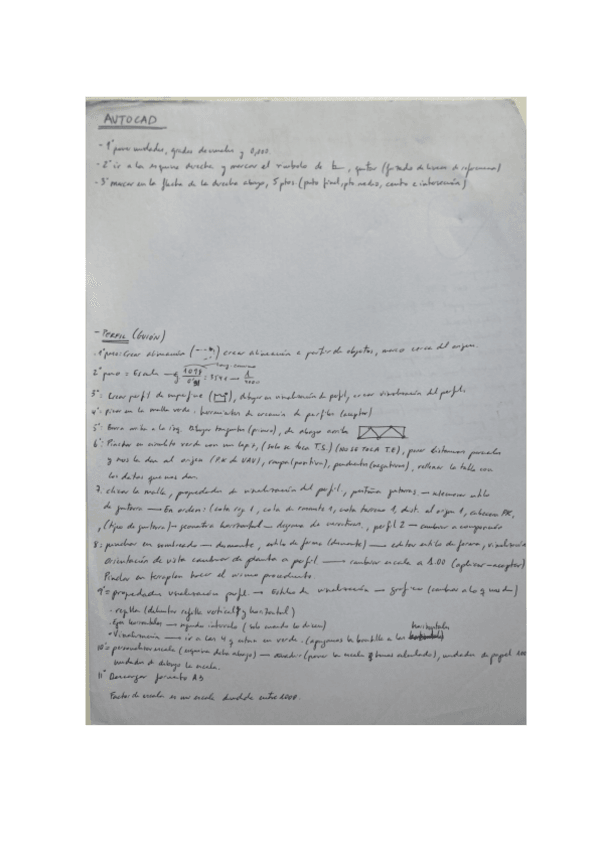 AUTOCAD
- 1º poner unidades, grados decimales y 0,000
- 2º ir a la esquina derecha y marcar el símbolo de, quitar (forzado de líneas de referencia)
- 3º marcar en la flecha de la derecha abajo, 5 ptos (pto final, pto medio, centro e intersección)
- PERFIL (GUIÓN)
- 1º paso: Crear alineación ( ) crear alineación a partir de objetos, marco cerca del origen.
2º paso = Escala
3º = Crear perfil de superficie ( ), dibujar en visualización de perfil, crear visualización del perfil.
4º = picar en la malla verde - herramientas de creación de perfiles (aceptar)
5º = Barra arriba a la izq. Dibujar tangentes (pinaro), de abajo arriba
6º = Pinchar en símbolo verde con un lapiz, (solo se toca T.S.) (NO SE TOCA T.E), poner distancias parciales
y nos la dan al origen (P.K de VAV), rampa (positivo), pendientes (negativos), rellenar la tabla con
los datos que nos dan.
7. clicar la malla, propiedades de visualización del perfil, pestaña guitarras
de guitarra — En orden: (cota roj 1, cota de rasante 1, cota terreno 1, dist. al origen 1,
(tipo de guitarra) — geometria horizontal — diagrama de curvatura, perfil 2 — cambiar a componente
8º = pinchar en sombreado — desmonte, estilo de forma (desmonte) — editar estilo de forma, visualización
orientación de vista cambiar de planta a perfil — cambiar escala a 1.00 (aplicar-aceptar)
Pinchar en terraplén hacer el mismo procedimiento.
9º = propiedades visualización perfil — Estilo de visualización — gráfico (cambiar a lo q nos den)
- rejilla (delimitar rejilla vertical y horizontal)
- Ejes horizontales — agudo intervalo (solo cuando lo dicen)
• Visualización — ir a las 4 y estan en verde. (apagamos la bombilla a las horizontales
10º = personalizar escala (esquina dcha abajo) — añadir (poner la escala q hemos calculado), unidades de papel
unidades de dibujo la escala.
11º Descargar formato A3
Factor de escala es mi escala dividida entre 1000.